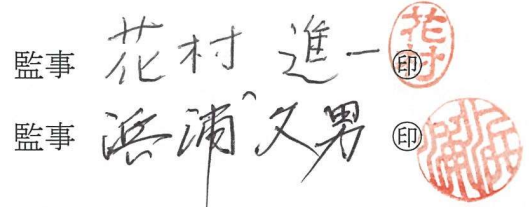 監事 花村 進一 ㊞ 花村
監事 浜浦 久男 ㊞ 浜浦